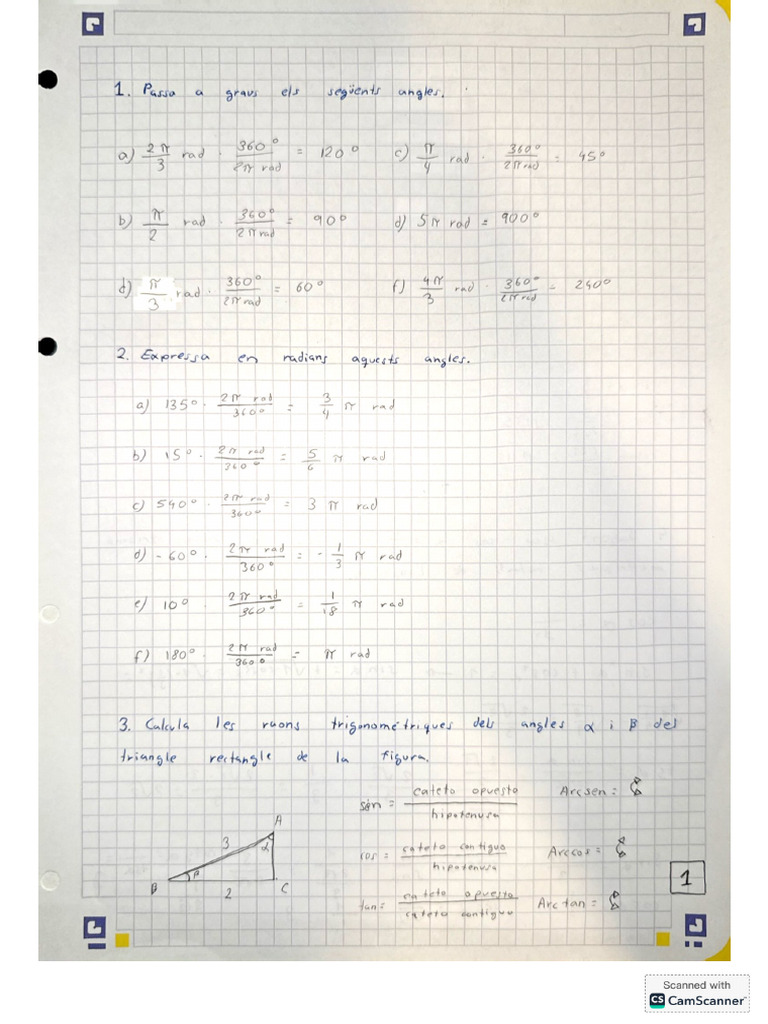 1. Passa a graus els següents angles.
a) 2π/3 rad · 360°/2π rad = 120° c) π/4 rad · 360°/2π rad = 45°
b) π/2 rad · 360°/2π rad = 90° d) 5π rad = 900°
d) π/3 rad · 360°/2π rad = 60° f) 4π/3 rad · 360°/2π rad = 240°
2. Expressa en radians aquests angles.
a) 135° · 2π rad/360° = 3/4 π rad
b) 15° · 2π rad/360° = 5/6 π rad
c) 540° · 2π rad/360° = 3 π rad
d) -60° · 2π rad/360° = -1/3 π rad
e) 10° · 2π rad/360° = 1/18 π rad
f) 180° · 2π rad/360° = π rad
3. Calcula les raons trigonométriques dels angles α i β del
triangle rectangle de la figura.
sen = cateto opuesto/hipotenusa Arcsen =
cos = cateto contiguo/hipotenusa Arccos =
tan = cateto opuesto/cateto contiguo Arctan =
A
3 α
B β C
2
1
Scanned with
CS CamScanner